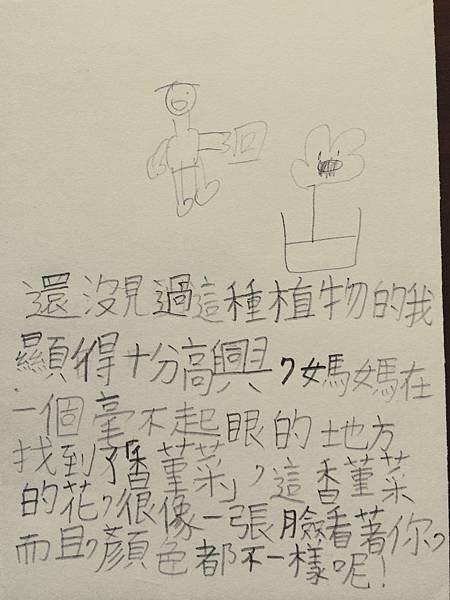 還沒見過這種植物的我
顯得十分高興，媽媽在
一個毫不起眼的地方
找到了「香菫菜」，這香菫菜
的花，很像一張臉看著你，
而且，顏色都不一樣呢！